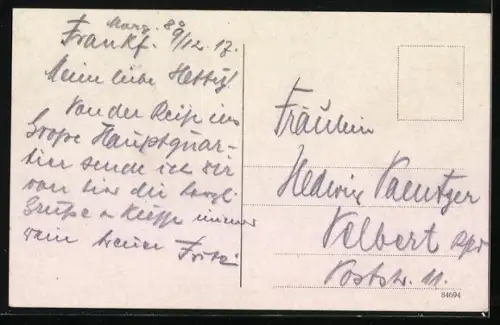 Morg. 8⁰
Frankf. 9/12.17.
Meine liebe Hettig!
Von der Reise ins
Große Hauptquar-
tier sende ich dir
von hier die herzl.
Grüße u Küsse immer
dein treuer Fritz
Fräulein
Hedwig
Velbert Rhld
Poststr. 11.
84694